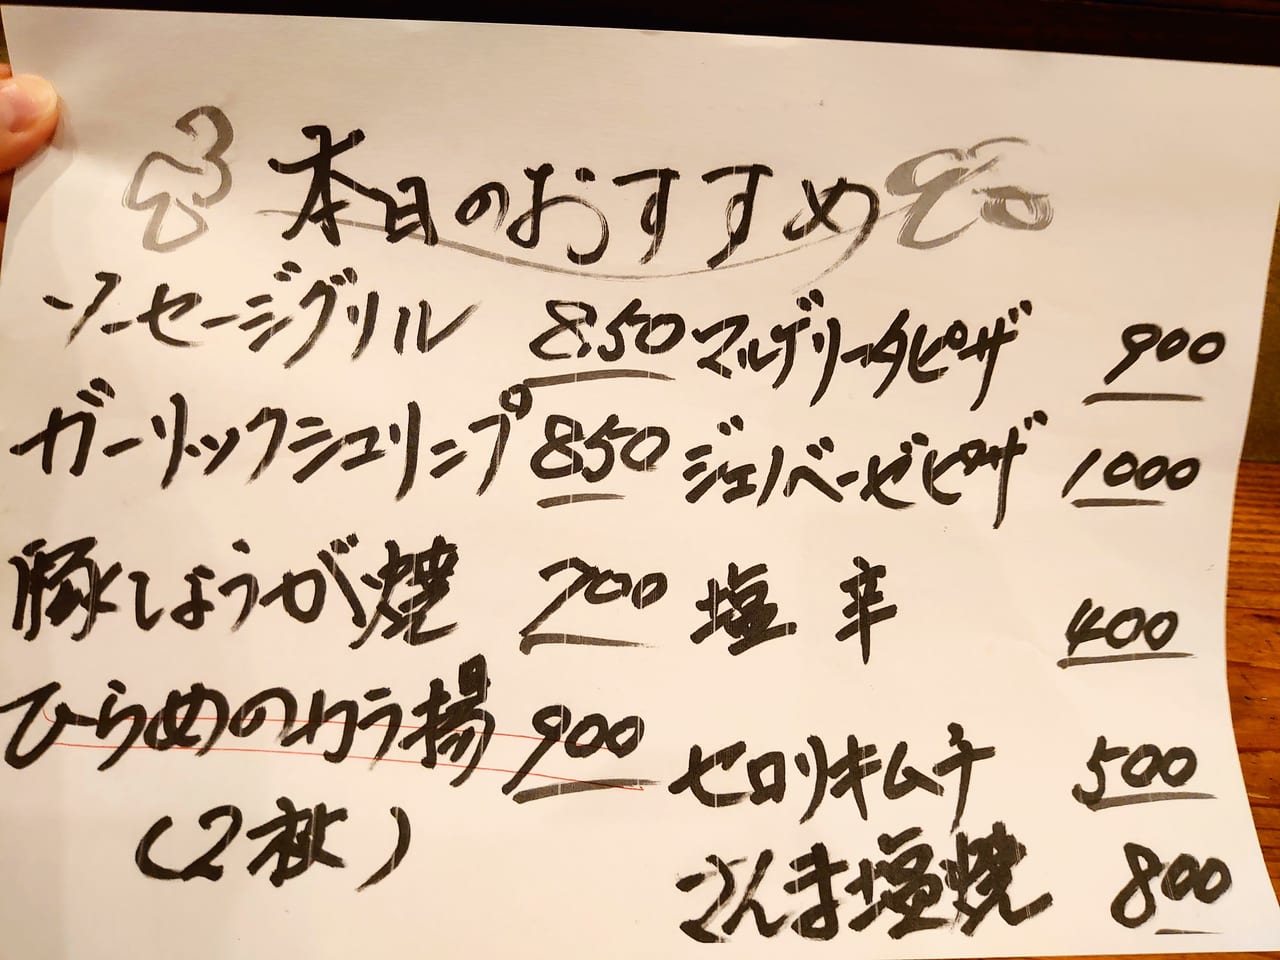 本日のおすすめ
ソーセージグリル 850
ガーリックシュリンプ 850
豚しょうが焼 700
ひらめのカラ揚 900
(2枚)
マルゲリータピザ 900
ジェノベーゼピザ 1000
塩辛 400
セロリキムチ 500
さんま塩焼 800